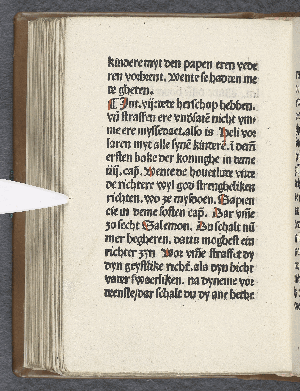 kindere myt den papen eren vede
ren vorbrent. Wente se hadden me
de gheten.
Int. vij. wete herschop hebben.
vn straffen ere vndsate nicht vm-
me ere myssedaet. also is Heli vor
laren myt alle syne kindere. i dem
ersten boke der koninghe in deme
iiij. cap. Wente de houetlude vnde
de richtere wyl god strengheliken
richten. wo ze mysdoen. Sapien
cie in deme sosten cap. Dar vme
zo secht Salemon. Du schalt nu
mer begheren. dattu moghest ein
richter zyn Wor vme straffet dy
dyn geystlike richt. als dyn bicht
vader swaerliken. na dyneme vor
deenste/dar schalt du dy ane bethe